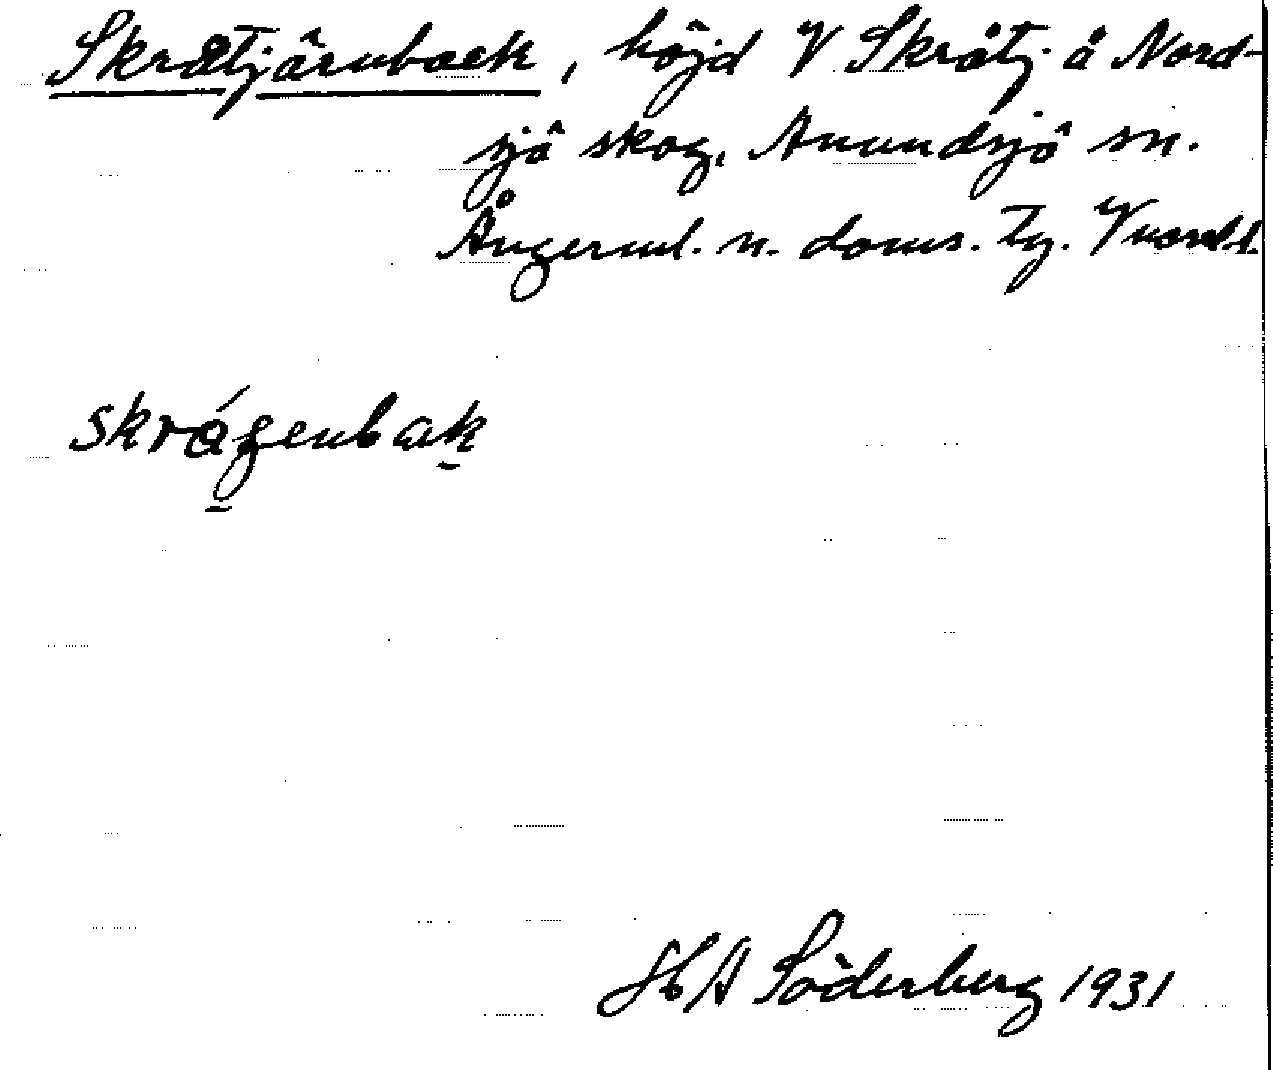 Skråtjärnback, höjd V Skråtj. å Nord-
sjö skog, Anundsjö sn.
Ångerml. n. doms. tg. Vnorrl.
skrágenbak
H A Söderberg 1931